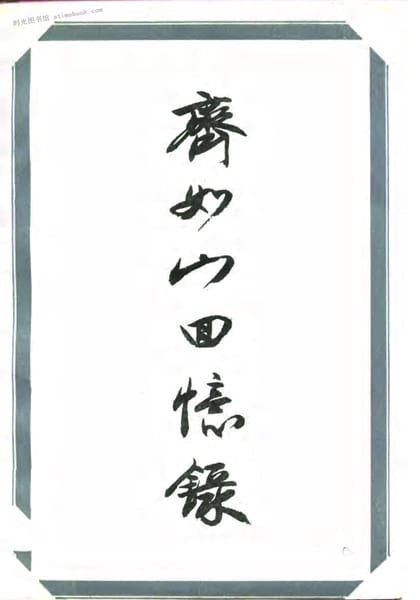 时光图书馆 atimebook.com
齊如山回憶錄